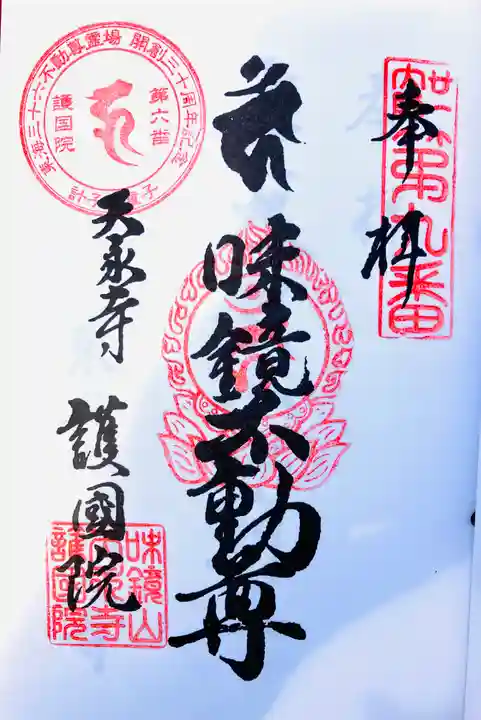 奉拝
第九番
味鏡不動尊
東海三十六不動尊霊場 開創三十周年記念
第六番
護国院
天永寺
護國院
味鏡山
天永寺
護國院